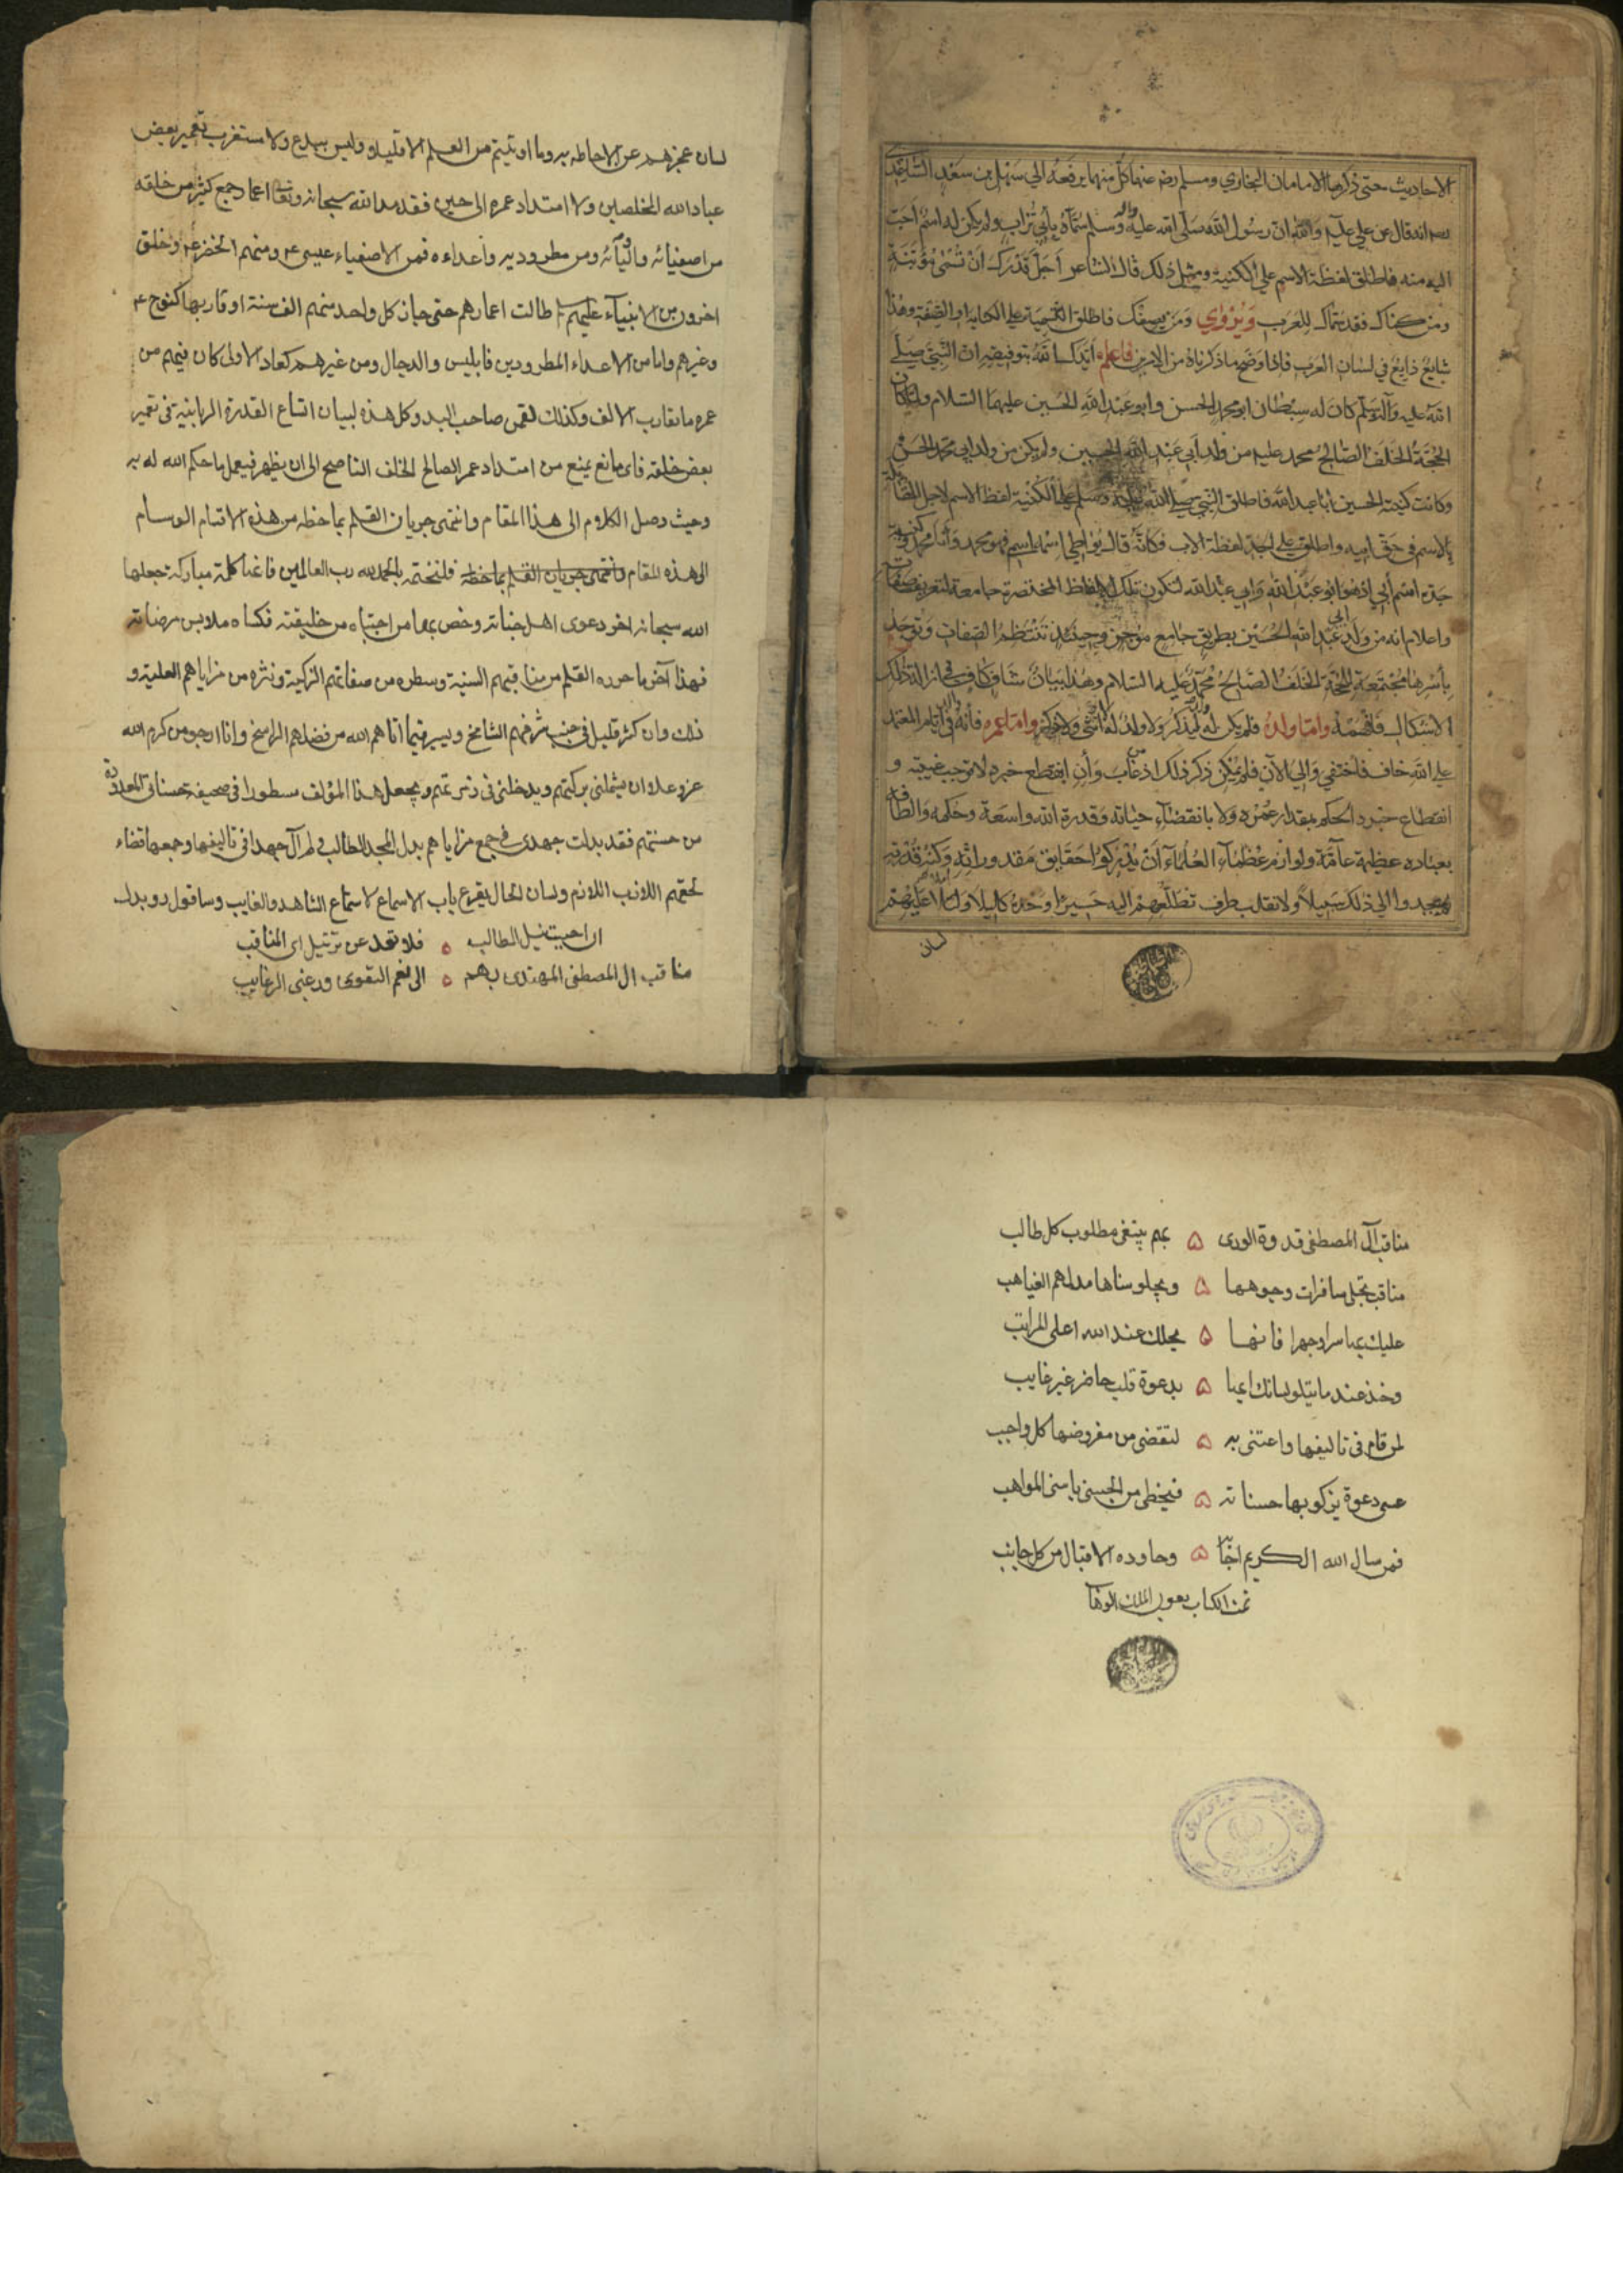 الاحاديث حتى ذكرها الامامان البخاري ومسلم رضه عنهما كل منهما يرفعه الي سهل بن سعد الساعدي
انه قال عن علي عليه والله ان رسول الله صلى الله عليه واله وسلم سماه بابي تراب ولم يكن له اسم احب
اليه منه فاطلق لفظة الاسم علي الكنية ومثل ذلك قال الشاعر اجل قدرك ان تسمى مؤبنة
ومن كناك فقد سماك للعرب ويروي ومن يصفك فاطلق التسمية علي الكناية او الصفة وهذا
شايع ذايع في لسان العرب فاذا وضح ما ذكرناه من الامرين فاعلم ايدك الله بتوفيقه ان النبي صلي
الله عليه وآله وسلم كان له سبطان ابو محمد الحسن وابو عبد الله الحسين عليهما السلام ولما كان
الحجة الخلف الصالح محمد عليه من ولد ابي عبد الله الحسين ولم يكن من ولد ابي محمد الحسن
وكانت كنية الحسين ابا عبد الله فاطلق النبي صلي الله عليه وسلم علي الكنية لفظ الاسم لاجل المقابلة
بالاسم في حق ابيه واطلق علي الجد لفظة الاب فكانه قال يواطي اسمه اسمي فهو محمد وانا محمد وكنية
جده اسم ابي اذ هو ابو عبد الله وابي عبد الله لتكون تلك الالفاظ المختصرة جامعة لتعريف صفاته
واعلام انه من ولد ابي عبد الله الحسين بطريق جامع موجز وحينئذ تنتظم الصفات وتوجد
باسرها مجتمعة للحجة الخلف الصالح محمد عليه السلام وهذا بيان شاف كاف في ازالة ذلك
الاشكال فافهمه واما ولده فلم يكن له ولد ليذكر ولا ولد له لا انثى ولا ذكر واما عمره فانه في ايام المعتمد
علي الله خاف فاختفي والي الآن فلم يمكن ذكر ذلك اذ من غاب وان انقطع خبره لا توجب غيبته و
انقطاع خبره الحكم بمقدار عمره ولا بانقضاء حياته وقدرة الله واسعة وحكمه والطافه
بعباده عظيمة عامة ولو ارم عظماء العلماء ان يدركوا حقايق مقدوراته وكنه قدرته
لم يجدوا الي ذلك سبيلا ولانقلب طرف تطلعهم اليه حسيرا وحده كليلا ولتلا عليهم
لسان
لسان عجزهم عن الاحاطه به وما اوتيتم من العلم الا قليلا وليس ببدع ولا مستغرب تعمير بعض
عباد الله المخلصين ولا امتداد عمره الى حين فقد مد الله سبحانه وتعالى اعمار جمع كثير من خلقه
من اصفيائه واوليآئه ومن مطروديه واعداءه فمن الاصفياء عيسى ۴ ومنهم الخضر ۴ وخلق
اخرون من الانبيآء عليهم طالت اعمارهم حتى جاز كل واحد منهم الف سنة او قاربها كنوح ۴
وغيرهم واما من الاعداء المطرودين فابليس والدجال ومن غيرهم كعاد الاولى كان فيهم من
عمره ما يقارب الالف وكذلك لقمن صاحب لبد وكل هذه لبيان اتساع القدرة الربانية في تعمير
بعض خلقه فاى مانع يمنع من امتداد عمر الصالح الخلف الناصح الى ان يظهر فيعمل ما حكم الله له به
وحيث وصل الكلام الى هذا المقام وانتهى جريان القلم بما خطه من هذه الاقسام الوسام
الى هذه المقام وانتهى جريان القلم بما خطه فلنختمه بالحمد لله رب العالمين فانها كلمة مباركة جعلها
الله سبحانه اخر دعوى اهل جناته وخص بها من اجتباه من خليقته فكساه ملابس مرضاته
فهذا آخر ما حرره القلم من مناقبهم السنية وسطره من صفاتهم الزكية ونثره من مزاياهم العلية و
ذلك وان كثر قليل في جنب شرفهم الشامخ ويسير فيما اتاهم الله من فضلهم الراسخ وانا ارجو من كرم الله
عز وعلا ان يشملني ببركتهم ويدخلني في زمرتهم ويجعل هذا المؤلف مسطورا في صحيفة حسناتي المعدودة
من حسنتهم فقد بذلت جهدى في جمع مزاياهم بذل المجد الطالب ولم آل جهدا في تاليفها وجمعها قضاء
لحقهم اللازب اللازم ولسان الحال يقرع باب الاسماع لاسماع الشاهد والغايب وساقول
ان احببت نيل المطالب ه فلا تعد عن ترتيل اى المناقب
مناقب ال المصطفى المهتدى بهم ه الى نعم التقوى ورغبى الرغايب
مناقب آل المصطفى قدوة الورى ه بهم يبتغى مطلوب كل طالب
مناقب تجلى سافرات وجوهها ه ويجلو سناها مدلهم الغياهب
عليك بها سرا وجهرا فانها ه يحلك عند الله اعلى المراتب
وخذ عند ما يتلو لسانك ايها ه بدعوة قلب حاضر غير غايب
لمن قام في تاليفها واعتنى به ه لتقضى من مفروضها كل واجب
عسى دعوة يزكو بها حسناته ه فيحظى من الحسنى باسنى المواهب
فمن سال الله الكريم اجابه ه وجاوده الاقبال من كل جانب
تمت الكتاب بعون الملك الوهاب